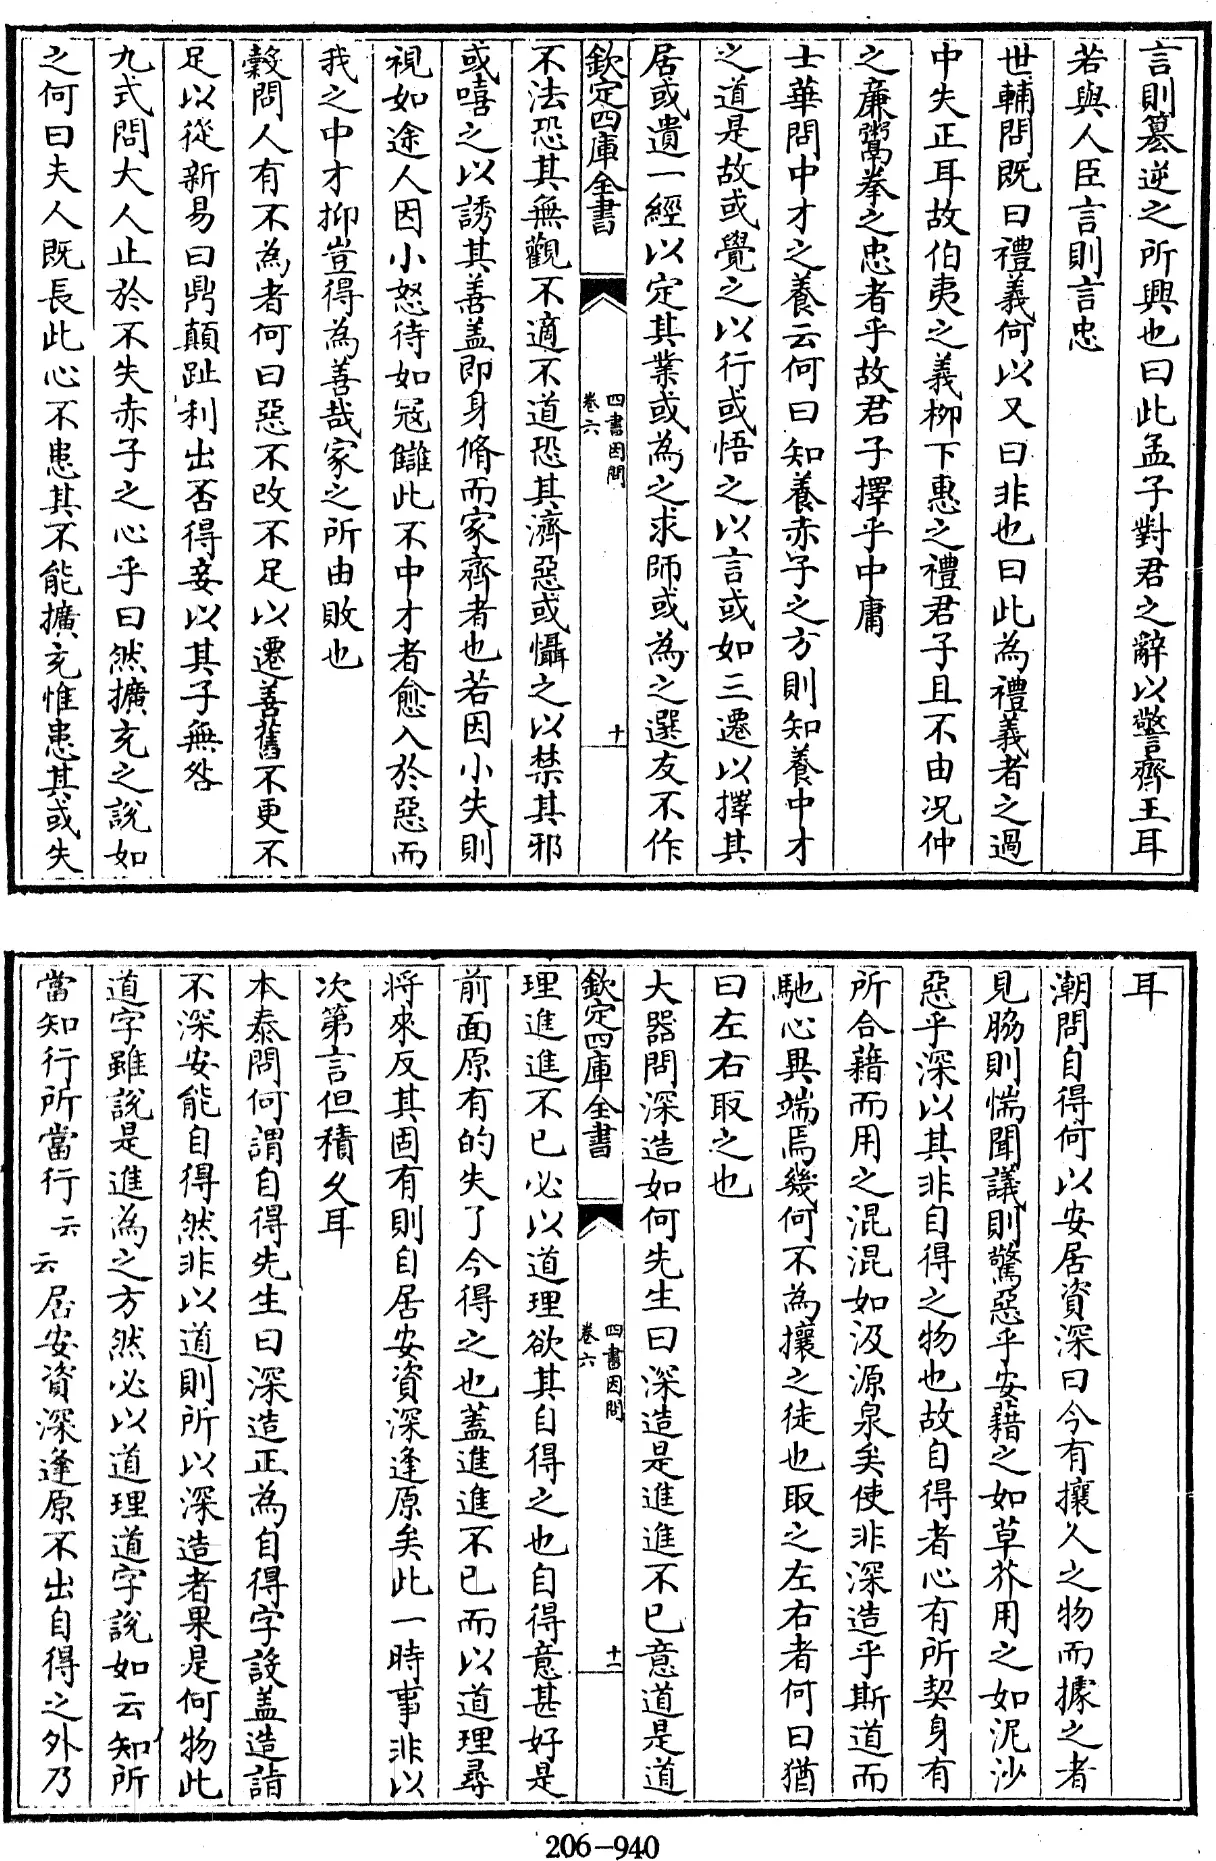 言則簒逆之所興也曰此孟子對君之辭以警齊王耳
若與人臣言則言忠
世輔問既曰禮義何以又曰非也曰此為禮義者之過
中失正耳故伯夷之義柳下惠之禮君子且不由况仲
之廉鬻拳之忠者乎故君子擇乎中庸
士華問中才之養云何曰知養赤子之方則知養中才
之道是故或覺之以行或悟之以言或如三遷以擇其
居或遺一經以定其業或為之求師或為之選友不作
欽定四庫全書
四書因問
卷六
十
不法恐其無觀不適不道恐其濟惡或懾之以禁其邪
或嘻之以誘其善盖即身脩而家齊者也若因小失則
視如途人因小怒待如冦讎此不中才者愈入於惡而
我之中才抑豈得為善哉家之所由敗也
縠問人有不為者何曰惡不改不足以遷善舊不更不
足以從新易曰鼎顛趾利出否得妾以其子無咎
九式問大人止於不失赤子之心乎曰然擴充之說如
之何曰夫人既長此心不患其不能擴充惟患其或失
耳
潮問自得何以安居資深曰今有攘人之物而據之者
見脇則惴聞議則驚惡乎安藉之如草芥用之如泥沙
惡乎深以其非自得之物也故自得者心有所契身有
所合藉而用之混混如汲源泉矣使非深造乎斯道而
馳心異端焉幾何不為攘之徒也取之左右者何曰猶
曰左右取之也
大器問深造如何先生曰深造是進進不已意道是道
欽定四庫全書
四書因問
卷六
十一
理進進不已必以道理欲其自得之也自得意甚好是
前面原有的失了今得之也蓋進進不已而以道理尋
将來反其固有則自居安資深逢原矣此一時事非以
次第言但積久耳
本泰問何謂自得先生曰深造正為自得字設盖造詣
不深安能自得然非以道則所以深造者果是何物此
道字雖說是進為之方然必以道理道字說如云知所
當知行所當行云云居安資深逢原不出自得之外乃
206-940